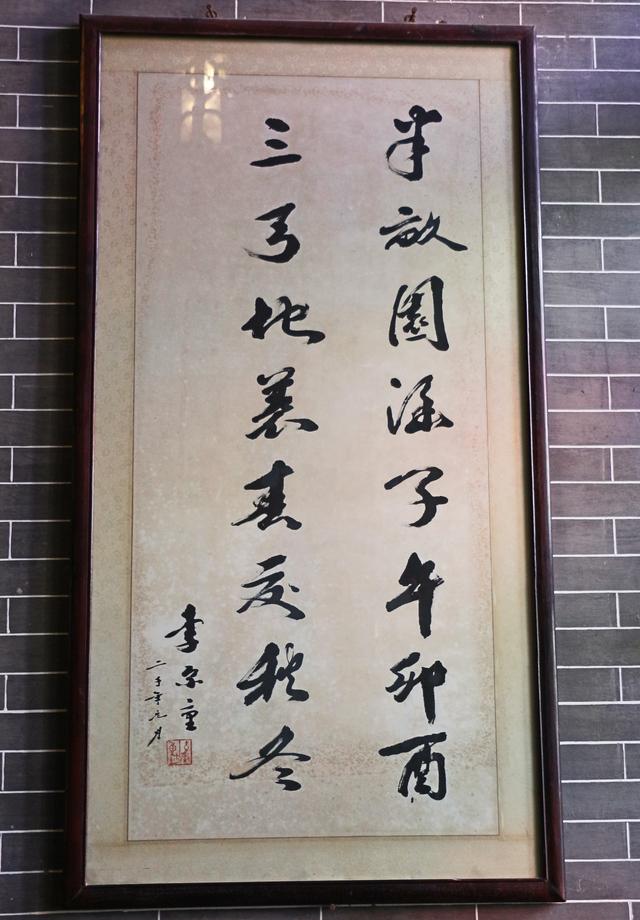 半畝園涵子午卯酉
三弓地養春夏秋冬
李尔重
二千年元月